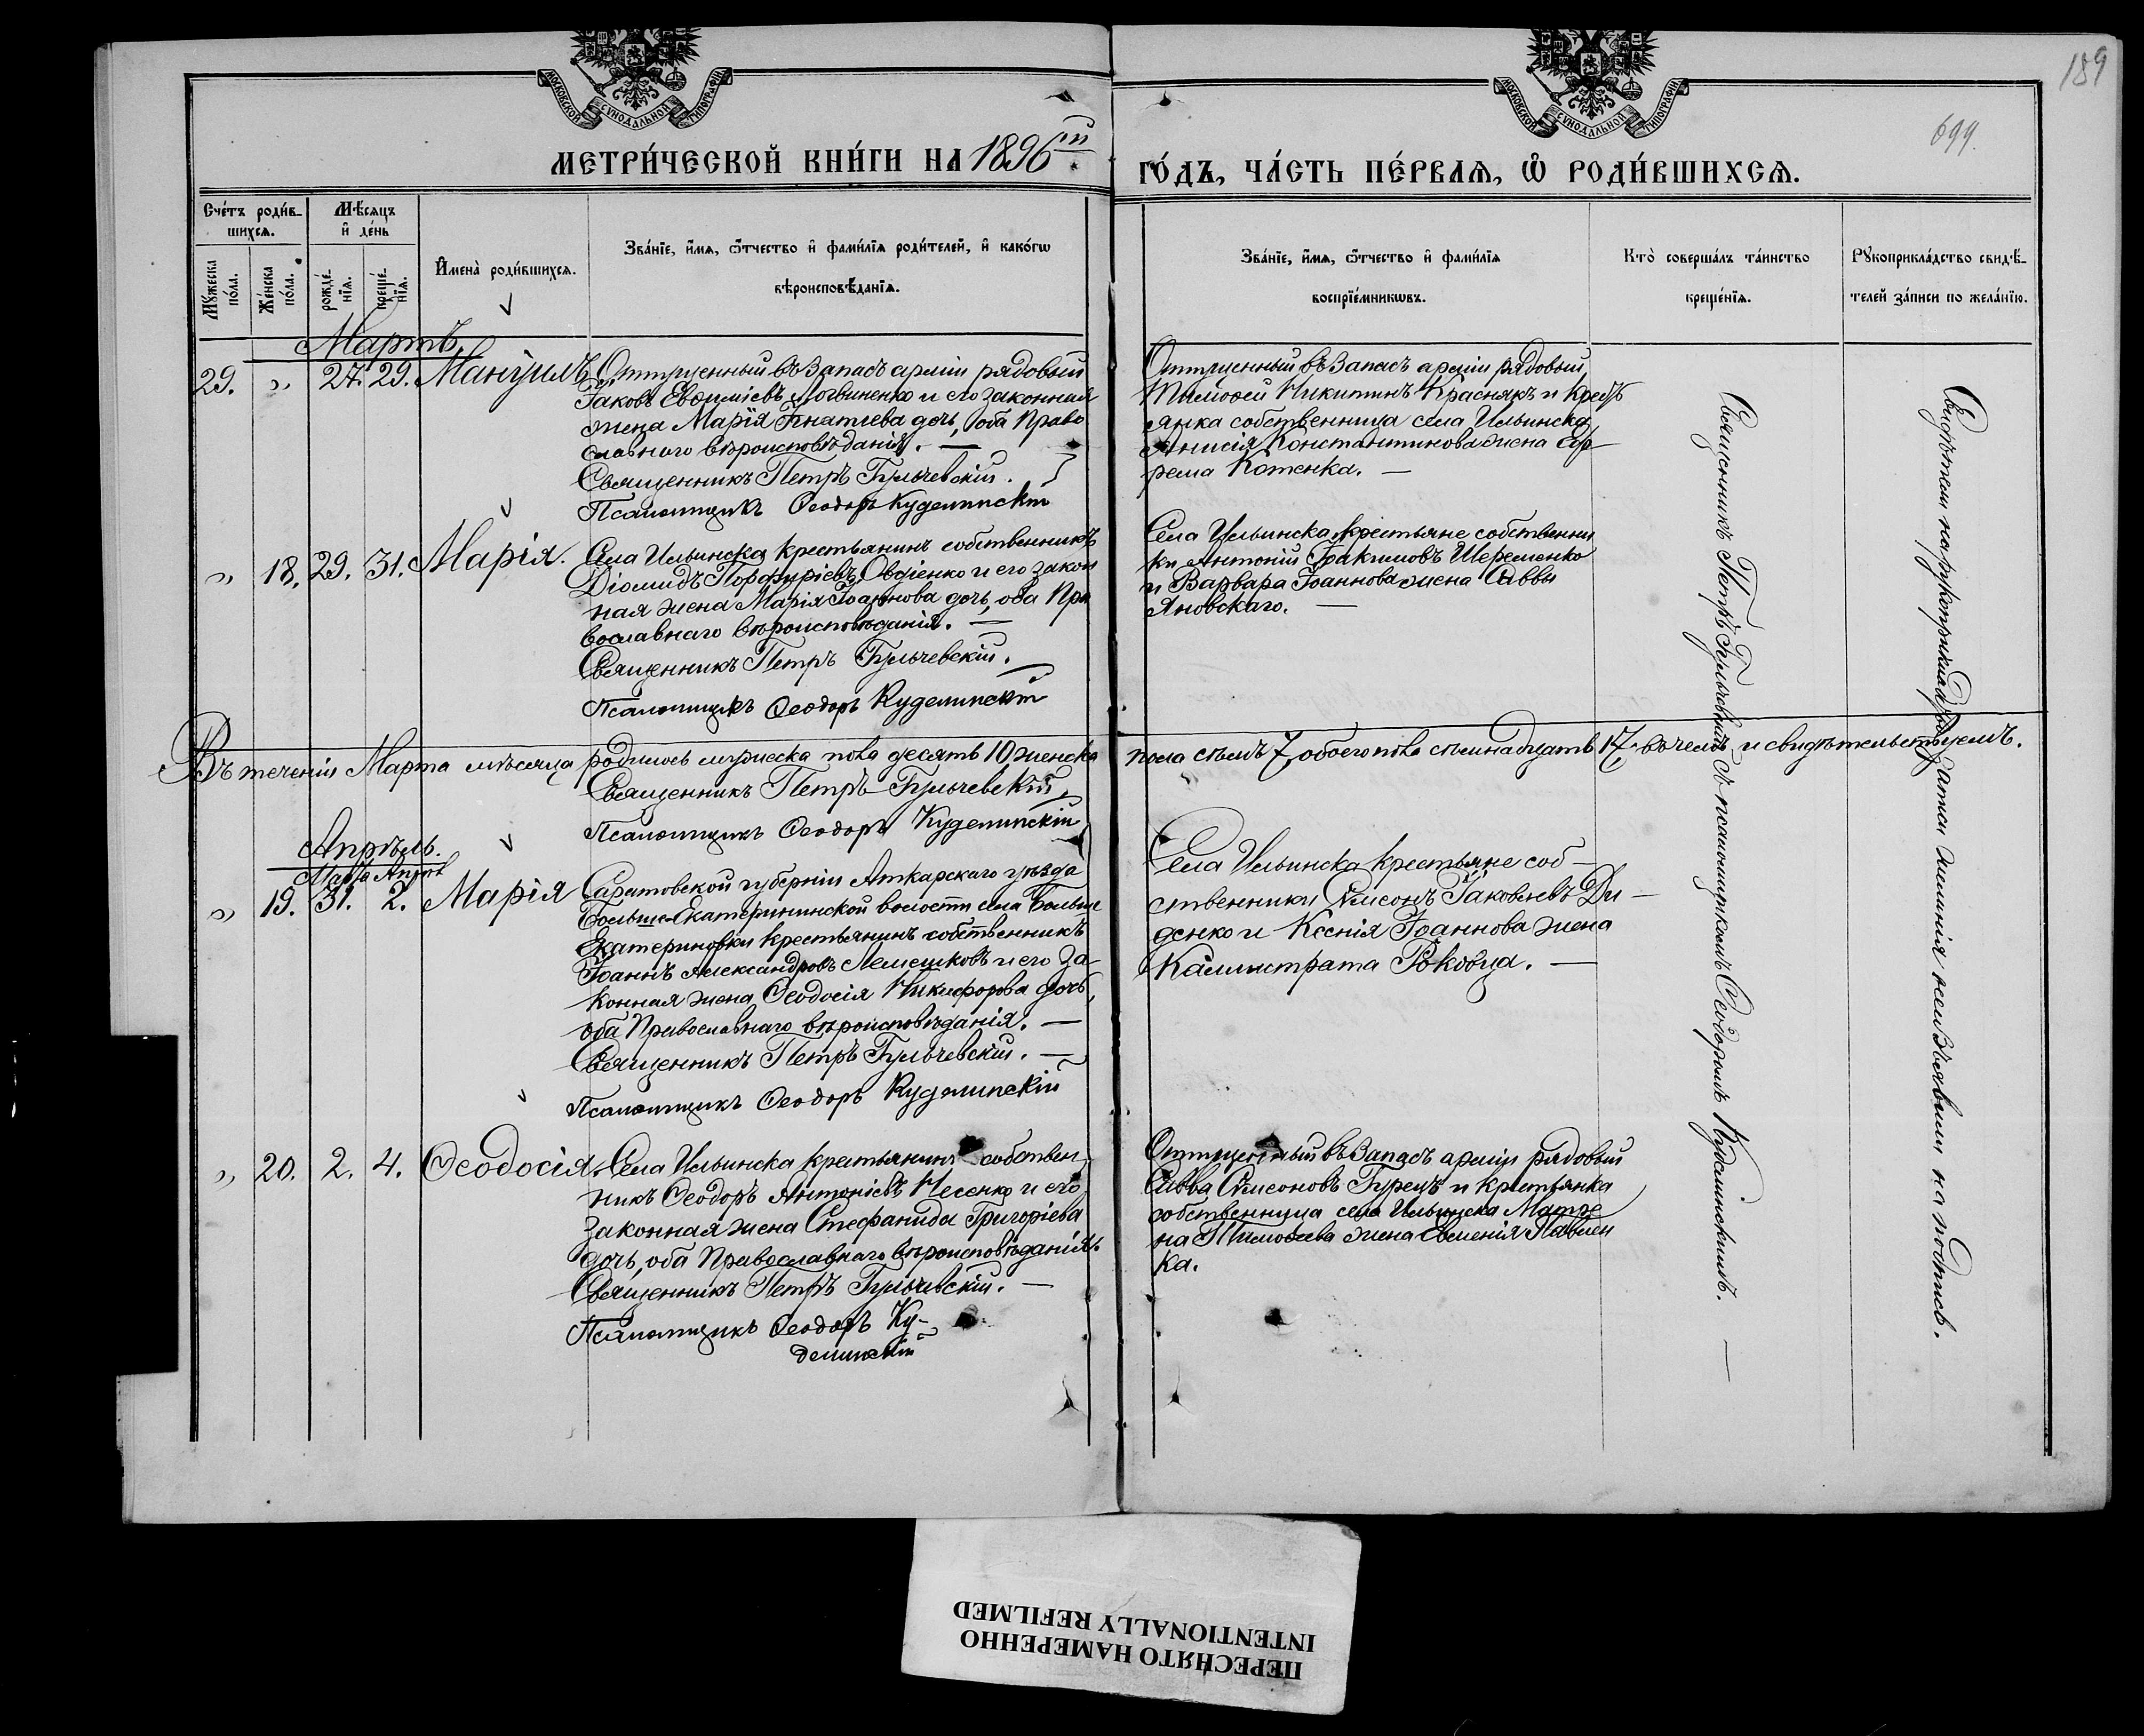 189
699.
МОСКОВСКОЙ СѴНОДАЛЬНОЙ ТИПОГРАФІИ
МОСКОВСКОЙ СѴНОДАЛЬНОЙ ТИПОГРАФІИ
МЕТРИ́ЧЕСКОЙ КНИ́ГИ НА 1896й
ГО́ДЪ, ЧА́СТЬ ПЕ́РВАѦ, Ѽ РОДИ́ВШИХСѦ.
Сче́тъ роди́в-
шихсѧ.
Мѣ́сѧцъ
и҆ де́нь
Мꙋжеска
по́ла.
Же́нска
по́ла.
рожде́-
нїѧ.
креще́-
нїѧ.
И҆мена̀ роди́вшихсѧ.
Зва́нїе, и҆́мѧ, ѻ҆́тчество и҆ фами́лїѧ роди́телей, и҆ како́гѡ
вѣроисповѣ́данїѧ.
Зва́нїе, и҆́мѧ, ѻ҆́тчество и҆ фами́лїѧ
воспрїе́мникѡвъ.
Кто̀ соверша́лъ та́инство
креще́нїѧ.
Рꙋкоприкла́дство свидѣ́-
телей за́писи по жела́нїю.
Мартъ
29. „ 27. 29. Мануилъ
Отпущенный въ Запасъ арміи рядовый
Іаковъ Евѳиміевъ Логвиненко и его законная
жена Марія Игнатіева дочь, оба Право
славнаго вѣроисповѣданія. —
Священникъ Петръ Бульчевскій.
Псаломщикъ Ѳеодоръ Куделинскій
Отпущенный въ Запасъ арміи рядовый
Тимоѳей Никитинъ Краснякъ и Крест
янка собственница села Ильинска
Анисія Константинова жена Еф
рема Котенка. —
„ 18. 29. 31. Марія.
Села Ильинска крестьянинъ собственникъ
Діомидъ Порфиріевъ Овдіенко и его закон
ная жена Марія Іоаннова дочь, оба Пра
вославнаго вѣроисповѣданія. —
Священникъ Петръ Бульчевскій.
Псаломщикъ Ѳеодоръ Куделинскій
Села Ильинска крестьяне собственни
ки Антоній Іоакимовъ Шереметко
и Варвара Іоаннова жена Саввы
Яновскаго. —
Въ теченіи Марта мѣсяца родилось мужеска пола десять 10, женска
пола семь 7, обоего пола семнадцать 17, въ чемъ и свидѣтельствуемъ.
Священникъ Петръ Бульчевскій,
Псаломщикъ Ѳеодоръ Куделинскій
Апрѣль.
Марта Апрѣл
„ 19. 31. 2. Марія
Саратовской губерніи Аткарскаго уѣзда
Больше-Екатерининской волости села Больше
Екатериновки крестьянинъ собственникъ
Іоаннъ Александровъ Лемешковъ и его за-
конная жена Ѳеодосія Никифорова дочь,
оба Православнаго вѣроисповѣданія. —
Священникъ Петръ Бульчевскій. —
Псаломщикъ Ѳеодоръ Куделинскій
Села Ильинска крестьяне соб-
ственники Самсонъ Іаковлевъ Ди-
денко и Ксенія Іоаннова жена
Каллистрата Роковца. —
„ 20. 2. 4. Ѳеодосія
Села Ильинска крестьянинъ собствен-
никъ Ѳеодоръ Антоніевъ Несенко и его
законная жена Стефанида Григоріева
дочь, оба Православнаго вѣроисповѣданія.
Священникъ Петръ Бульчевскій. —
Псаломщикъ Ѳеодоръ Ку-
делинскій
Отпущенный въ Запасъ арміи рядовый
Савва Самсоновъ Гурецъ и крестьянка
собственница села Ильинска Матре
на Тимоѳеева жена Евменія Павлен
ка.
Священникъ Петръ Бульчевскій съ псаломщикомъ Ѳеодоромъ Куделинскимъ. —
Свидѣтели на рукоприкладство записи желанія не изъявили на подпись.
ПЕРЕСНЯТО НАМЕРЕННО
INTENTIONALLY REFILMED